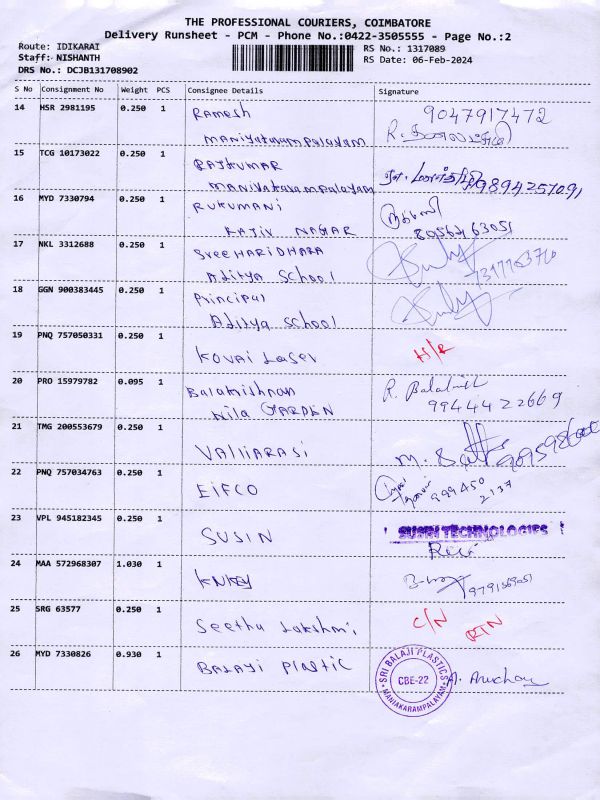 THE PROFESSIONAL COURIERS, COIMBATORE
Delivery Runsheet - PCM - Phone No.:0422-3505555 - Page No.:2
Route: IDIKARAI RS No.: 1317089
Staff: NISHANTH RS Date: 06-Feb-2024
DRS No.: DCJB131708902
S No Consignment No Weight PCS Consignee Details Signature
14 HSR 2981195 0.250 1 Ramesh 9047917472
Maniyakarampalayam R.
15 TCG 10173022 0.250 1 Rajkumar
Maniyakarampalayam 9894257091
16 MYD 7330794 0.250 1 Rukumani
Rajiv Nagar
17 NKL 3312688 0.250 1 Sree Haridhara
Aditya School
18 GGN 900383445 0.250 1 Principal
Aditya School
19 PNQ 757050331 0.250 1 Kovai Laser H/R
20 PRO 15979782 0.095 1 Balakrishnan R.
Nila Garden 9944422669
21 TMG 200553679 0.250 1 Valliarasi M.
22 PNQ 757034763 0.250 1 EIFCO 999450
2137
23 VPL 945182345 0.250 1 SUSIN SUSIN TECHNOLOGIES
Ravi
24 MAA 572968307 1.030 1
25 SRG 63577 0.250 1 Seetha Lakshmi C/N RTN
26 MYD 7330826 0.930 1 Balaji Plastic SRI BALAJI PLASTICS
CBE-22
MANIAKARAMPALAYAM